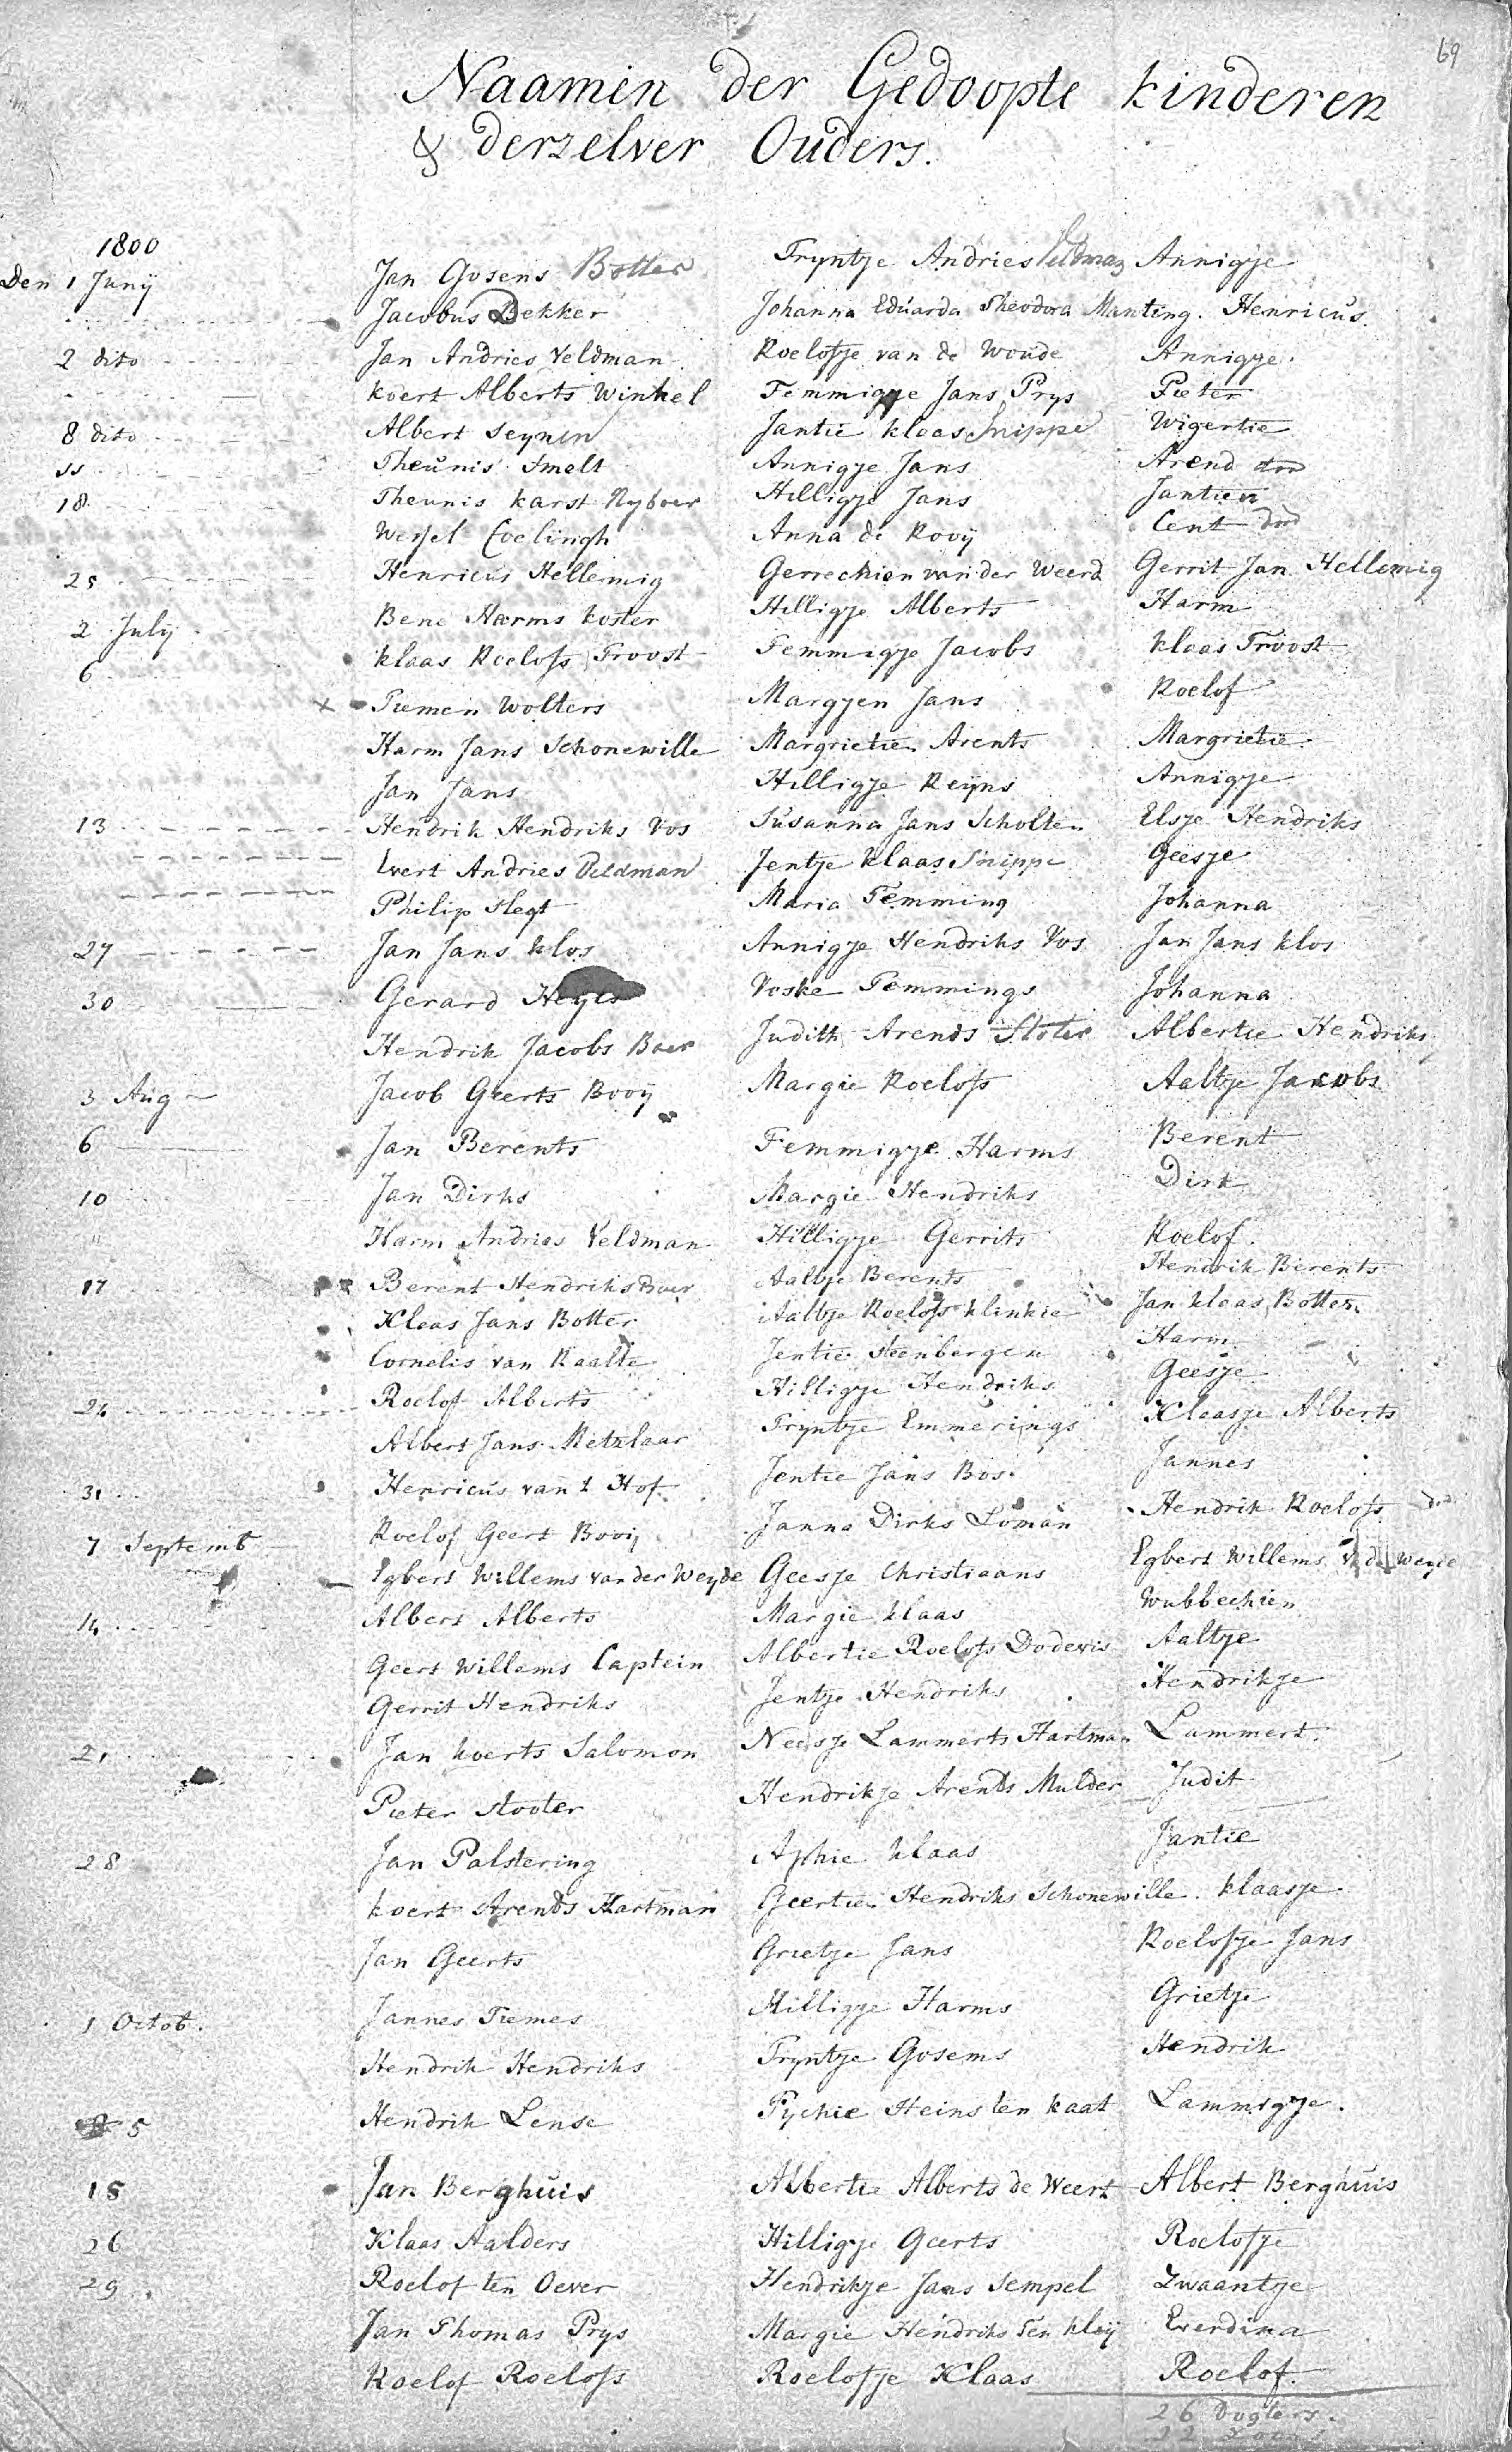 69
Naamen der Gedoopte kinderen
& derzelver Ouders.
1800
Den 1 Junij Jan Gosens Botter Tryntje Andries Veldman Annigje
Jacobus Bekker Johanna Eduarda Theodora Manting. Henricus.
2 dito Jan Andries Veldman Roelofje van de Woude Annigje.
Koert Alberts Winkel Femmigje Jans Prys Pieter
8 dito Albert Seynen Jantie klaas Snippe Wigertie
11 Theunis Smelt Annigje Jans Arend
18 Theunis Karst Nyboer Hilligje Jans Jantien
Wessel Evelingh Anna de Rooij Cent dod
25 Henricus Hellemig Gerrechien van der Weerd Gerrit Jan Hellemig
2 July Bene Harms Koster Hilligje Alberts Harm
6 Klaas Roelofs Troost Femmigje Jacobs klaas Troost
x Tiemen Wolters Margjen Jans Roelof
Harm Jans Schonewille Margrietien Arents Margrietie
Jan Jans Hilligje Reijns Annigje
13 Hendrik Hendriks Vos Susanna Jans Scholten Elsje Hendriks
Evert Andries Veldman Jentje klaas Snippe Geesje
Philip Slegt Maria Temming Johanna
27 Jan Jans Klos Annigje Hendriks Vos Jan Jans klos
30 Gerard Heyes Voske Temmings Johanna
Hendrik Jacobs Boer Judith Arends Sloter Albertie Hendriks
3 Aug Jacob Geerts Booij Margie Roelofs Aaltje Jacobs
6 Jan Berents Femmigje Harms Berent
10 Jan Dirks Margie Hendriks Dirk
Harm Andries Veldman Hilligje Gerrits Roelof.
17 Berent Hendriks Boer Aaltje Berents Hendrik Berents
Klaas Jans Botter Aaltje Roelofs klinkie Jan klaas Botter.
Cornelis van Raalte Jentie Steenbergen Harm
24 Roelof Alberts Hilligje Hendriks Geesje
Albert Jans Metzlaar Tryntje Emmerings Klaasje Alberts
31 Henricus van t Hof Jentie Jans Bos. Jannes
7 Septemb Roelof Geert Booij Janna Dirks Loman Hendrik Roelofs
Egbert Willems van der Weyde Geesje Christiaans Egbert Willems v de Weyde
14 Albert Alberts Margie klaas Wubbechien
Geert Willems Captein Albertie Roelofs Dodewis Aaltje
Gerrit Hendriks Jentje Hendriks Hendrikje
21 Jan Koerts Salomon Neesje Lammerts Hartman Lammert.
Pieter Slooter Hendrikje Arends Mulder Judit
28 Jan Palstering Aphie klaas Jantie
Koert Arends Hartman Geertien Hendriks Schonewille. klaasje
Jan Geerts Grietje Jans Roelofje Jans
1 Octob. Jannes Tiemes Hilligje Harms Grietje
Hendrik Hendriks Tryntje Gosems Hendrik
5 Hendrik Lense Pychie Heins ten kaat Lammigje.
15 Jan Berghuis Albertie Alberts de Weert Albert Berghuis
26 Klaas Aalders Hilligje Geerts Roelofje
29 Roelof ten Oever Hendrikje Jans Sempel Zwaantje
Jan Thomas Prys Margie Hendriks Ten kley Everdina
Roelof Roelofs Roelofje Klaas Roelof.
26 Dogters.
22 Zoons